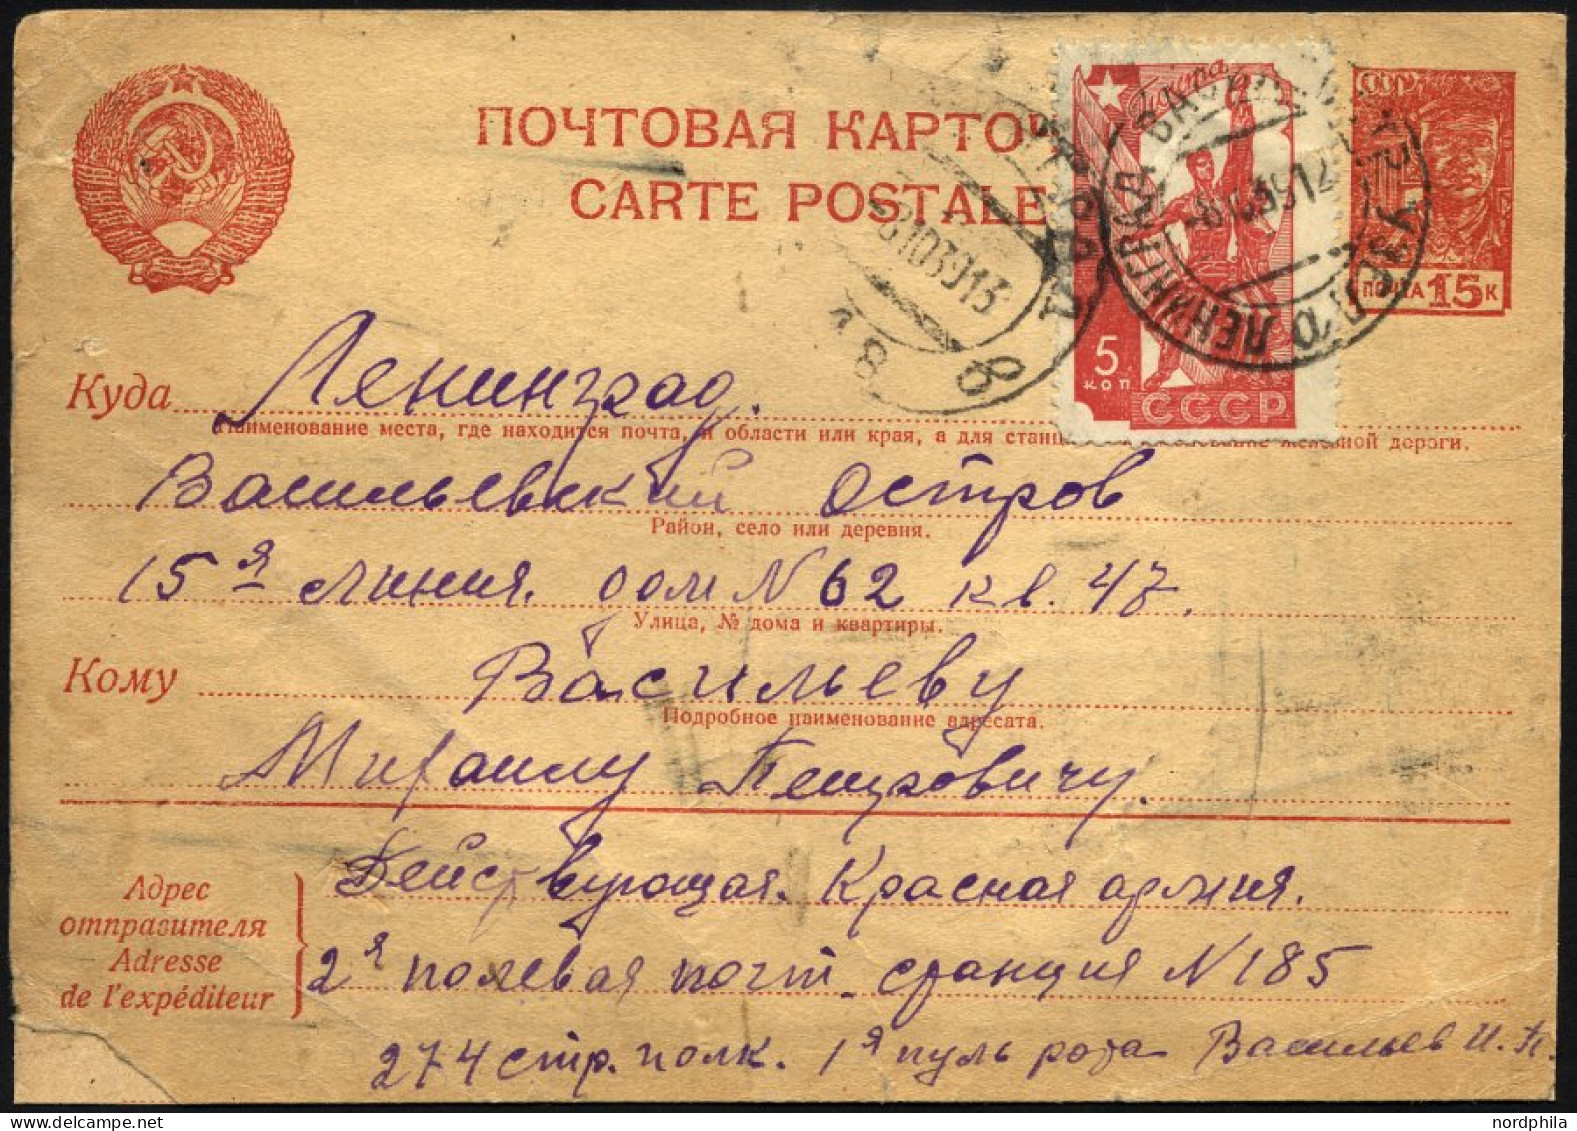 ПОЧТОВАЯ КАРТОЧ
CARTE POSTALE
СССР
ПОЧТА 15 К
Почта
5
КОП
СССР
ЛЕНИНГРАД
8 10 39 12
8 10 39 13
8
Куда Ленинград.
Наименование места, где находится почта, и области или края, а для станц железной дороги.
Васильевский Остров
Район, село или деревня.
15я линия. дом N 62 кв. 47.
Улица, № дома и квартиры.
Кому Васильеву
Подробное наименование адресата.
Михаилу Петровичу.
Действующая. Красная армия.
Адрес
отправителя
Adresse
de l'expéditeur
2я полевая почт. станция N 185
274 стр. полк. 1я пуль рота Васильев И. П.
nordphila